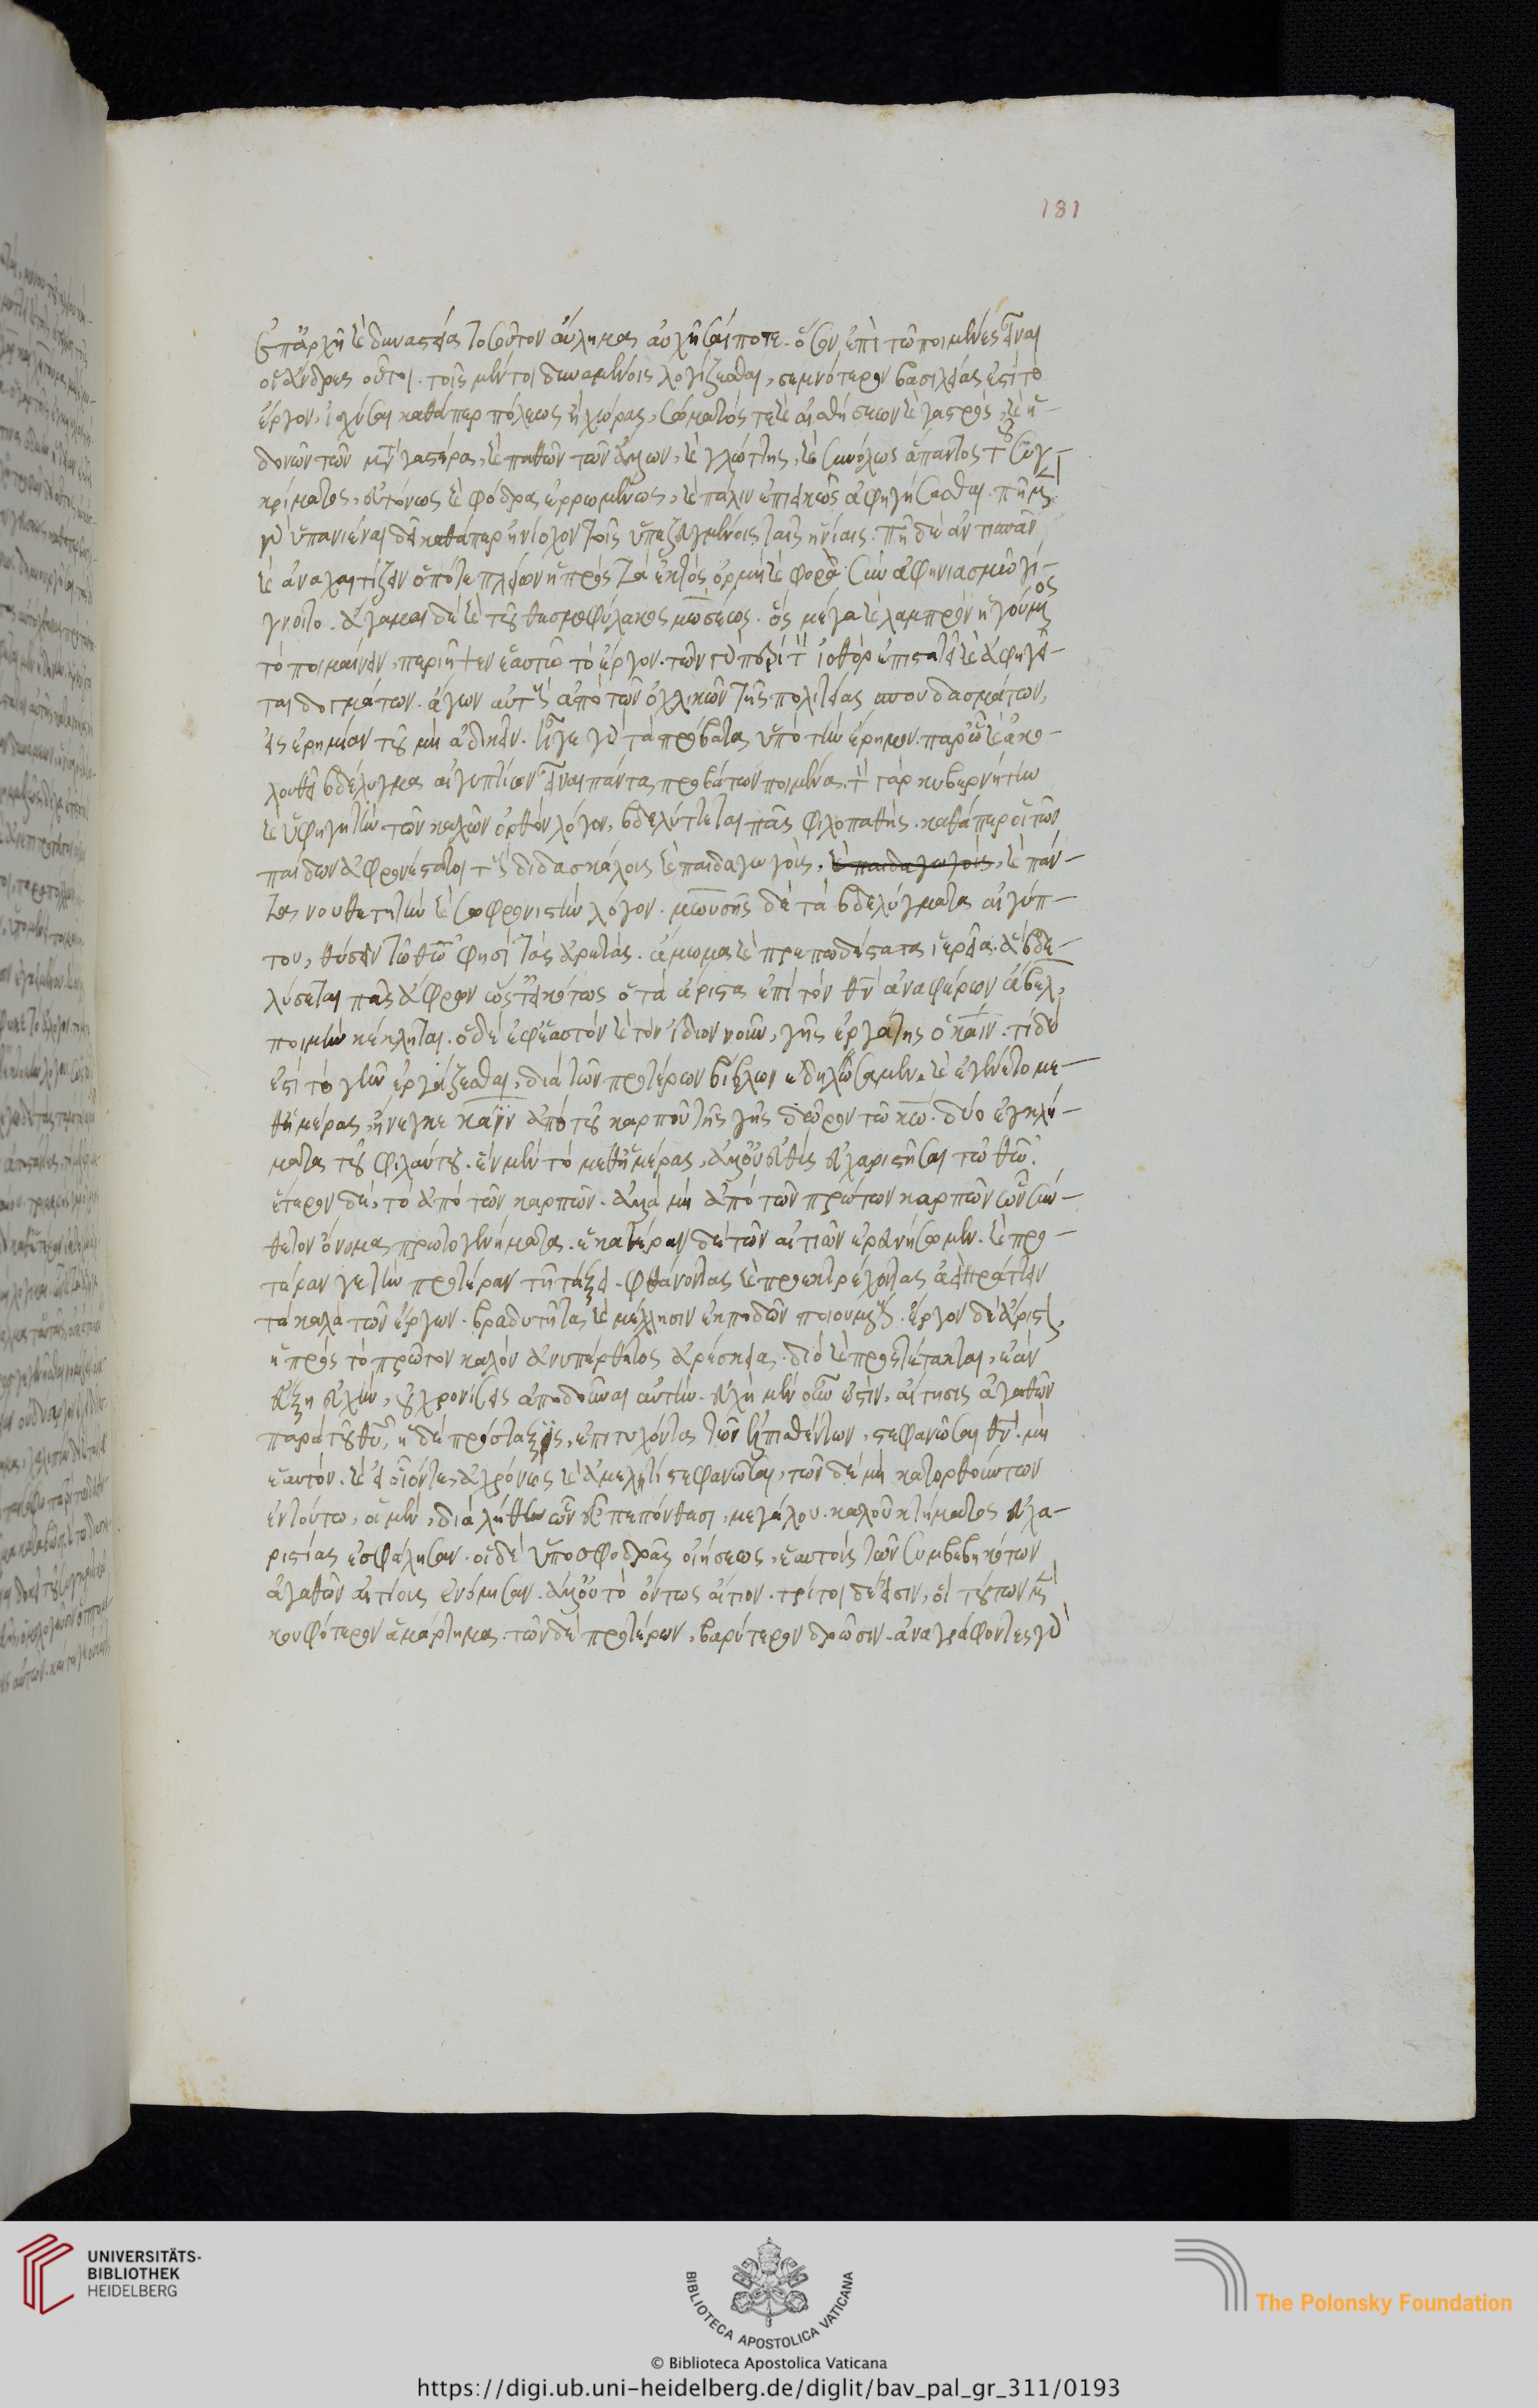 181
ἐπ' ἀρχῇ καὶ δυναστείας τοσοῦτον αὔχημα αὐχῆσαί ποτε. ὅσον ἐπὶ τῷ ποιμένες εἶναι
οἱ ἄνδρες οὗτοι. τοῖς μέντοι δυναμένοις λογίζεσθαι, σεμνότερον βασιλείας ἐστὶ τὸ
ἔργον, ἰσχύσαι καθάπερ πόλεως ἢ χώρας, σώματός τε καὶ αἰσθήσεων καὶ γαστρὸς, καὶ ἡ-
δονῶν τῶν μετὰ γαστέρα, καὶ παθῶν τῶν ἄλλων, καὶ γλώττης, καὶ συνόλως ἅπαντος τοῦ συγ-
κρίματος, εὐτόνως καὶ σφόδρα ἐρρωμένως, καὶ πάλιν ἐπιεικῶς ἀφηγήσασθαι. πῆ μὲν
γὰρ ὑπανιέναι δεῖ καθάπερ ἡνίοχον τοῖς ὑπεζευγμένοις ταῖς ἡνίαις. πῆ δὲ ἀντισπᾶν
καὶ ἀναχαιτίζειν ὁπότε πλείων ἡ πρὸς τὰ ἐκτὸς ὁρμὴ καὶ φορὰ σὺν ἀφηνιασμῷ γί-
γνοιτο. ἄγαμαι δὲ καὶ τοῦ θεσμοφύλακος μωσέως. ὃς μέγα καὶ λαμπρὸν ἡγούμενος
τὸ ποιμαίνειν, περιῆψεν ἑαυτῷ τὸ ἔργον. τῶν γὰρ περὶ τοῦ ἰοθὸρ ἐπιστατεῖ καὶ ἀφηγεῖ-
ται δογμάτων. ἄγων αὐτοὺς ἀπὸ τῶν ὀχλικῶν τῆς πολιτείας σπουδασμάτων,
εἰς ἐρημίαν τοῦ μὴ ἀδικεῖν. ἦγε γὰρ τὰ πρόβατα ὑπὸ τὴν ἔρημον. παρὸ καὶ ἀκο-
λουθεῖ βδέλυγμα αἰγυπτίων εἶναι πάντα προβάτων ποιμένα. τὸν γὰρ κυβερνήτην
καὶ ὑφηγητὴν τῶν καλῶν ὀρθὸν λόγον, βδελύττεται πᾶς φιλοπαθής. καθάπερ οἱ τῶν
παίδων ἀφρονέστατοι τοὺς διδασκάλους καὶ παιδαγωγούς, καὶ παιδαγωγούς, καὶ πάν-
τα νουθετητὴν καὶ σωφρονιστὴν λόγον. μωυσῆς δὲ τὰ βδελύγματα αἰγύπ-
του, θύσειν τῷ θεῷ φησὶ τὰς ἀρετάς. ἄμωμα καὶ πρεπωδέστατα ἱερεῖα. ἃ βδε-
λύσεται πᾶς ἄφρων ὥστ' εἰκότως ὁ τὰ ἄριστα ἐπὶ τὸν θν ἀναφέρων ἄβελ,
ποιμὴν κέκληται. ὁ δὲ ἐφ' ἑαυτὸν καὶ τὸν ἴδιον νοῦν, γῆς ἐργάτης ὁ κάιν. τί δὲ
ἐστὶ τὸ γῆν ἐργάζεσθαι, διὰ τῶν προτέρων βίβλων ἐδηλώσαμεν. καὶ ἐγένετο με-
θ' ἡμέρας, ἤνεγκε κάϊν ἀπὸ τοῦ καρποῦ τῆς γῆς δῶρον τῷ κω. δύο ἐγκλή-
ματα τοῦ φιλαύτου. ἓν μὲν τὸ μεθ' ἡμέρας, ἀλλ' οὐκ εὐθὺς εὐχαριστῆσαι τῷ θω.
ἕτερον δὲ, τὸ ἀπὸ τῶν καρπῶν. ἀλλὰ μὴ ἀπὸ τῶν πρώτων καρπῶν ὧν σύν-
θετον ὄνομα πρωτογενήματα. ἑκατέραν δὲ τῶν αἰτιῶν ἐρευνήσωμεν. καὶ προ-
τέραν γε τὴν προτέραν τῇ τάξει. φθάνοντας καὶ προεκτρέχοντας ἀεὶ πράττειν
τὰ καλὰ τῶν ἔργων. βραδυτῆτας καὶ μέλλησιν ἐκποδῶν ποιουμένους. ἔργον δὲ ἄριστον,
ἡ πρὸς τὸ πρῶτον καλὸν ἀνυπέρθετος ἀρέσκεια. διὸ καὶ προστέτακται, ἐὰν
εὔξῃ εὐχὴν, οὐ χρονίσεις ἀποδοῦναι αὐτήν. εὐχὴ μὲν οὖν ἐστὶν, αἴτησις ἀγαθῶν
παρὰ τοῦ θυ, ἡ δὲ πρόσταξις, ἐπιτυχόντας τῶν ἐλπισθέντων, στεφανῶσαι θν. μὴ
ἑαυτόν. καὶ εἰ οἷόν τε, ἀχρόνως καὶ ἀμελητὶ στεφανῶσαι, τῶν δὲ μὴ κατορθούντων
ἐν τούτῳ, οἱ μὲν, διὰ λήθην ὧν εὖ πεπόνθασι, μεγάλου καλοῦ κτήματος εὐχα-
ριστίας ἐσφάλησαν. οἱ δὲ ὑπὸ σφοδρᾶς οἰήσεως, ἑαυτοὺς τῶν συμβεβηκότων
ἀγαθῶν αἰτίους ἐνόμισαν. ἀλλ' οὐ τὸ ὄντως αἴτιον. τρίτοι δέ εἰσιν, οἱ τούτων μὲν
κουφότερον ἁμάρτημα τῶν δὲ προτέρων, βαρύτερον δρῶσιν. ἀναγράφοντες γὰρ
UNIVERSITÄTS-
BIBLIOTHEK
HEIDELBERG
BIBLIOTECA APOSTOLICA VATICANA
The Polonsky Foundation
© Biblioteca Apostolica Vaticana
https://digi.ub.uni-heidelberg.de/diglit/bav_pal_gr_311/0193